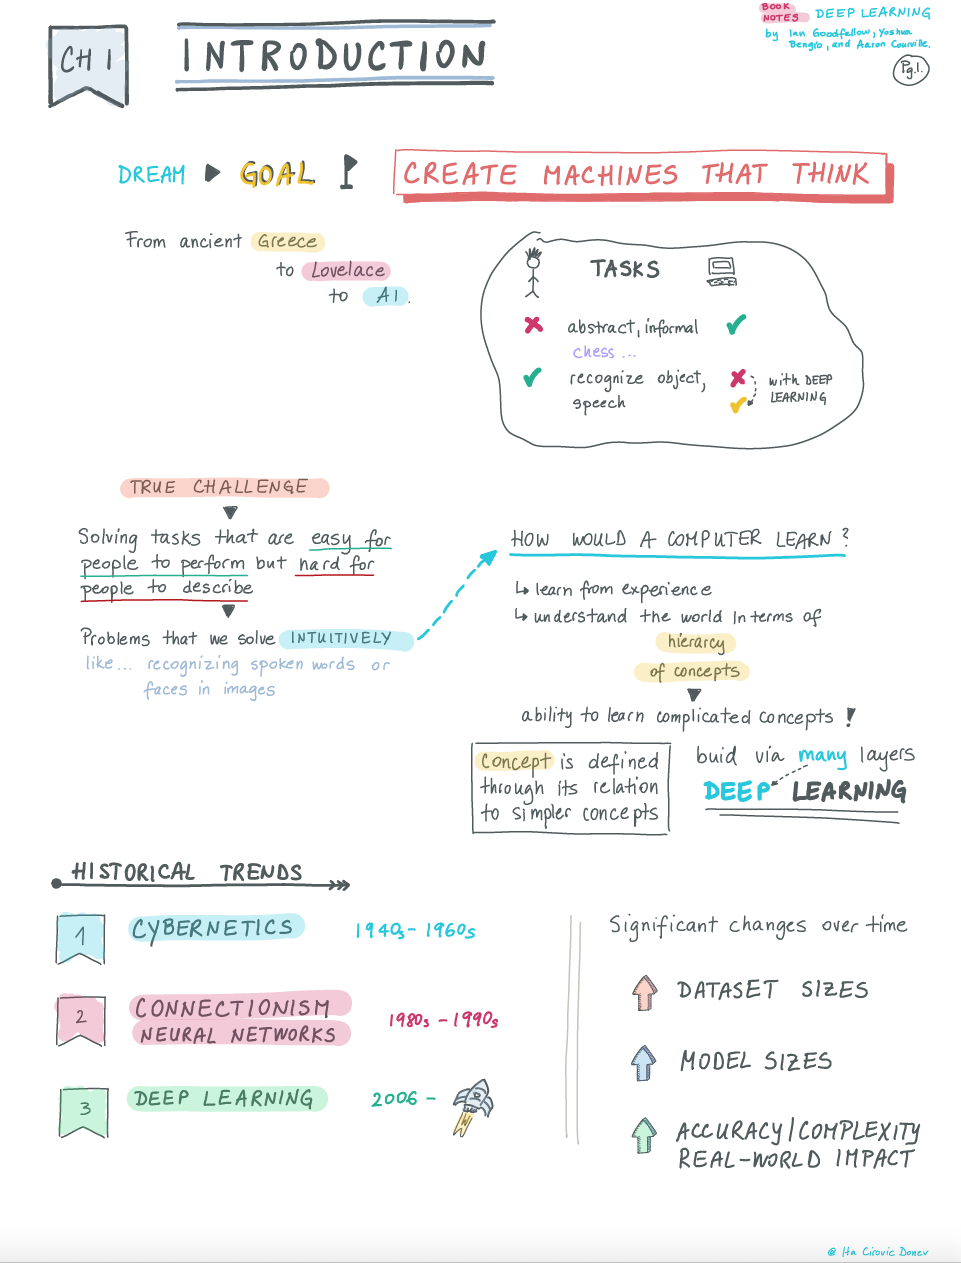 BOOK NOTES DEEP LEARNING
by Ian Goodfellow, Yoshua
Bengio, and Aaron Courville.
Pg.1.
CH 1
INTRODUCTION
DREAM ▶ GOAL
CREATE MACHINES THAT THINK
From ancient Greece
to Lovelace
to AI.
TASKS
✗ abstract, informal ✓
chess ...
✓ recognize object, ✗ with DEEP
speech ✓ LEARNING
TRUE CHALLENGE
Solving tasks that are easy for
people to perform but hard for
people to describe
Problems that we solve INTUITIVELY
like... recognizing spoken words or
faces in images
HOW WOULD A COMPUTER LEARN?
↳ learn from experience
↳ understand the world in terms of
hierarcy
of concepts
ability to learn complicated concepts !
Concept is defined
through its relation
to simpler concepts
buid via many layers
DEEP LEARNING
HISTORICAL TRENDS
1 CYBERNETICS 1940s - 1960s
2 CONNECTIONISM
NEURAL NETWORKS 1980s - 1990s
3 DEEP LEARNING 2006 -
Significant changes over time
DATASET SIZES
MODEL SIZES
ACCURACY/COMPLEXITY
REAL-WORLD IMPACT